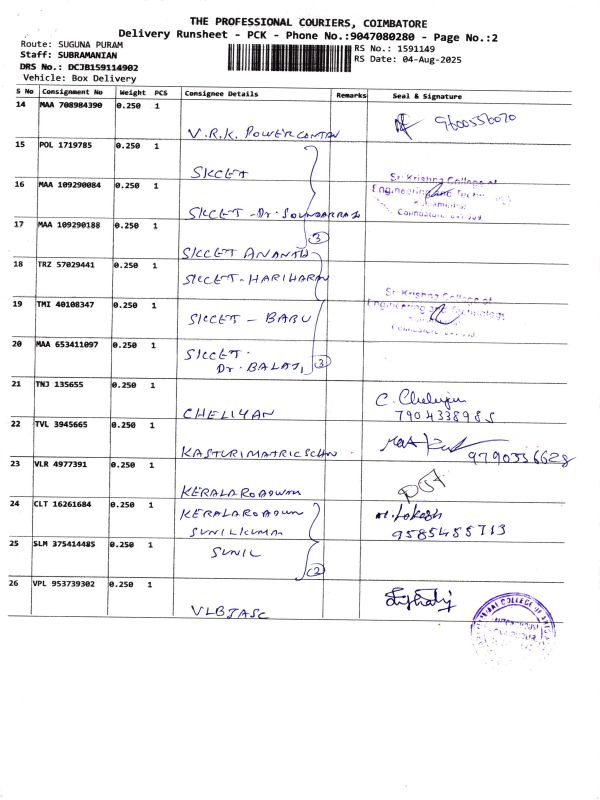 THE PROFESSIONAL COURIERS, COIMBATORE
Delivery Runsheet - PCK - Phone No.:9047080280 - Page No.:2
Route: SUGUNA PURAM
RS No.: 1591149
Staff: SUBRAMANIAN
RS Date: 04-Aug-2025
DRS No.: DCJB159114902
Vehicle: Box Delivery
S No Consignment No Weight PCS Consignee Details Remarks Seal & Signature
14 MAA 708984390 0.250 1
9600556020
V.R.K. POWERCONTAN
15 POL 1719785 0.250 1
SKCET
Sri Krishna College of
16 MAA 109290084 0.250 1
Engineering and Technology
SKCET - Dr. SOUNDARRAJ
Coimbatore
17 MAA 109290188 0.250 1
3
SKCET ANANTH
18 TRZ 57029441 0.250 1
SKCET - HARIHARAN
Sri Krishna College of
19 TMI 40108347 0.250 1
Engineering and Technology
SKCET - BABU
Coimbatore
20 MAA 653411097 0.250 1
SKCET.
Dr. BALAJI
3
21 TNJ 135655 0.250 1
7904338985
CHELIYAN
22 TVL 3945665 0.250 1
KASTURIMATRICSCHN
9790556628
23 VLR 4977391 0.250 1
KERALAROADWAN
24 CLT 16261684 0.250 1
KERALAROADWN
SUNILKUMA
9585485713
25 SLM 375414485 0.250 1
SUNIL
2
26 VPL 953739302 0.250 1
VLBJASC
COLLEGE OF